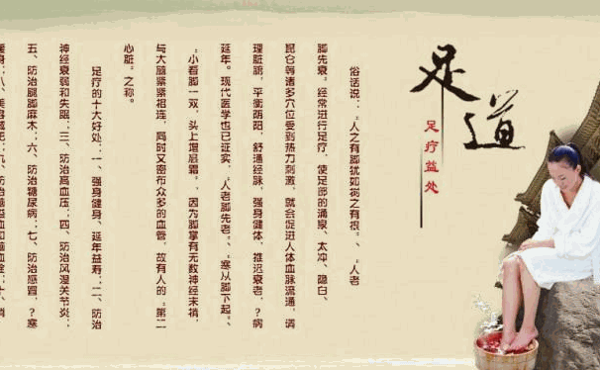 足道
足疗益处
俗话说:“人之有脚犹如树之有根。”、“人老
脚先衰,经常进行足疗,使足部的涌泉、太冲、隐白、
昆仑等诸多穴位受到热力刺激,就会促进人体血脉流通,调
理脏腑,平衡阴阳,舒通经脉,强身健体,推迟衰老,?病
延年。现代医学也已证实,“人老脚先老”、“寒从脚下起。”、
“小看脚一双,头上增层霜”,因为脚掌有无数神经末梢,
与大脑紧紧相连,同时又密布众多的血管,故有人的“第二
心脏”之称。
足疗的十大好处:一、强身健身,延年益寿;二、防治
神经衰弱和失眠;三、防治高血压;四、防治风湿关节炎;
五、防治腿脚麻木;六、防治糖尿病;七、防治感冒,?寒